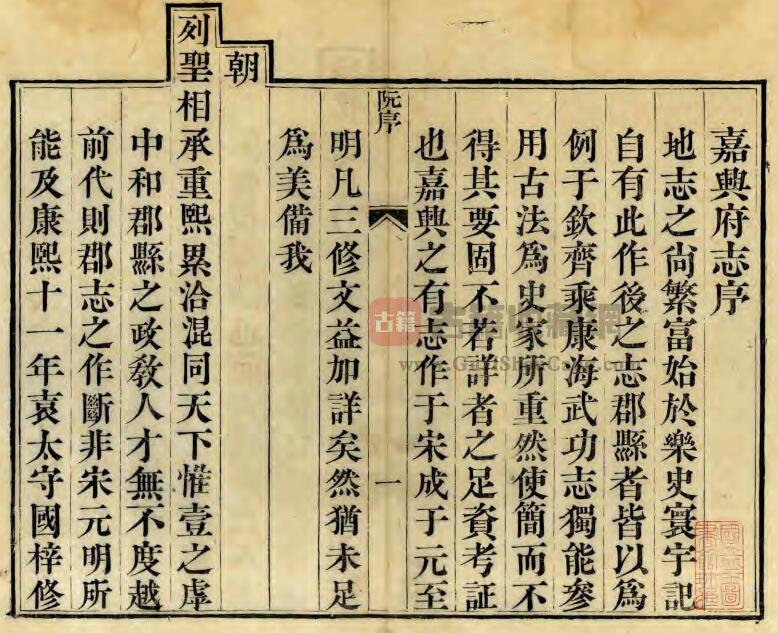 嘉興府志序
地志之尙繁富始於樂史寰宇記
自有此作後之志郡縣者皆以爲
例于欽齊乘康海武功志獨能參
用古法爲史家所重然使簡而不
得其要固不若詳者之足資考証
也嘉興之有志作于宋成于元至
阮序
一
明凡三修文益加詳矣然猶未足
爲美備我
朝
列聖相承重熙累洽混同天下惟壹之虖
中和郡縣之政敎人才無不度越
前代則郡志之作斷非宋元明所
能及康熙十一年袁太守國梓修
古籍